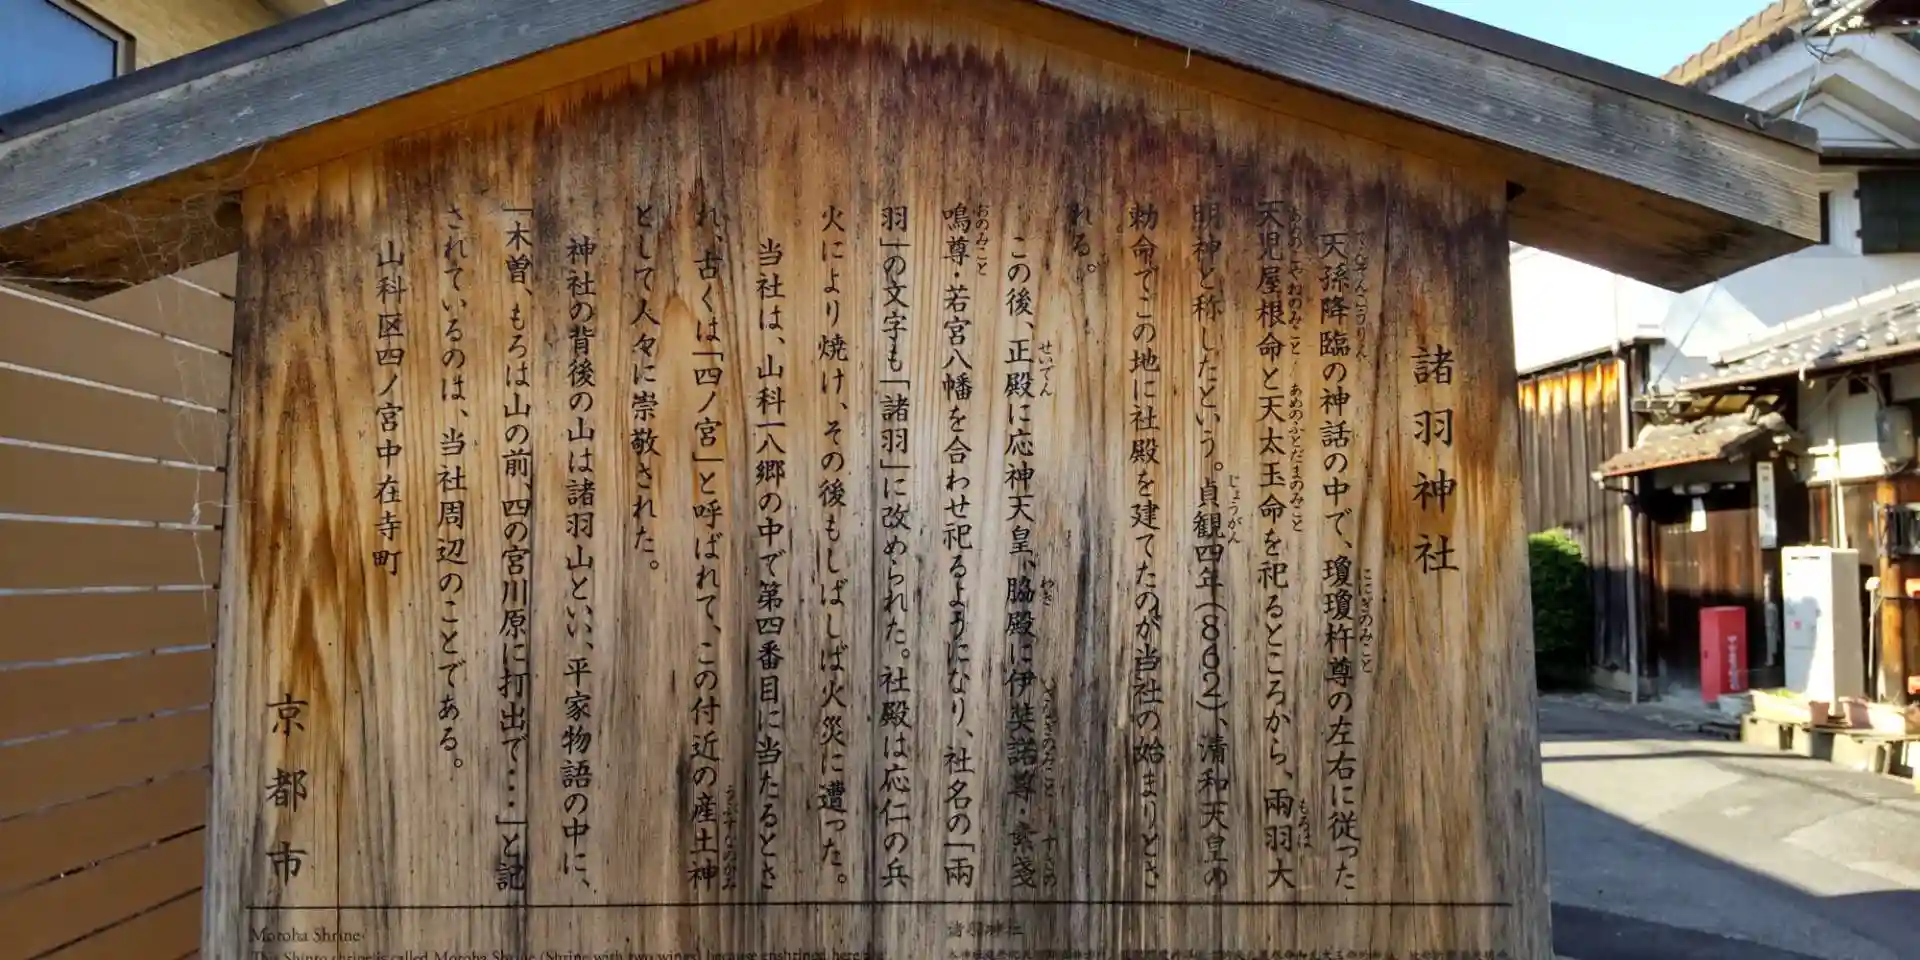 諸羽神社
天孫降臨の神話の中で、瓊瓊杵尊の左右に従った
天児屋根命と天太玉命を祀るところから、兩羽大
明神と称したという。貞観四年(862)、清和天皇の
勅命でこの地に社殿を建てたのが当社の始まりとさ
れる。
この後、正殿に応神天皇、脇殿に伊奘諾尊・素戔
嗚尊・若宮八幡を合わせ祀るようになり、社名の「兩
羽」の文字も「諸羽」に改められた。社殿は応仁の兵
火により焼け、その後もしばしば火災に遭った。
当社は、山科一八郷の中で第四番目に当たるとさ
れ、古くは「四ノ宮」と呼ばれて、この付近の産土神
として人々に崇敬された。
神社の背後の山は諸羽山といい、平家物語の中に、
「木曽、もろは山の前、四の宮川原に打出で・・・」と記
されているのは、当社周辺のことである。
山科区四ノ宮中在寺町
京都市
Moroha Shrine
This Shinto shrine is called Moroha Shrine (Shrine with two wings) because enshrined here are
諸羽神社